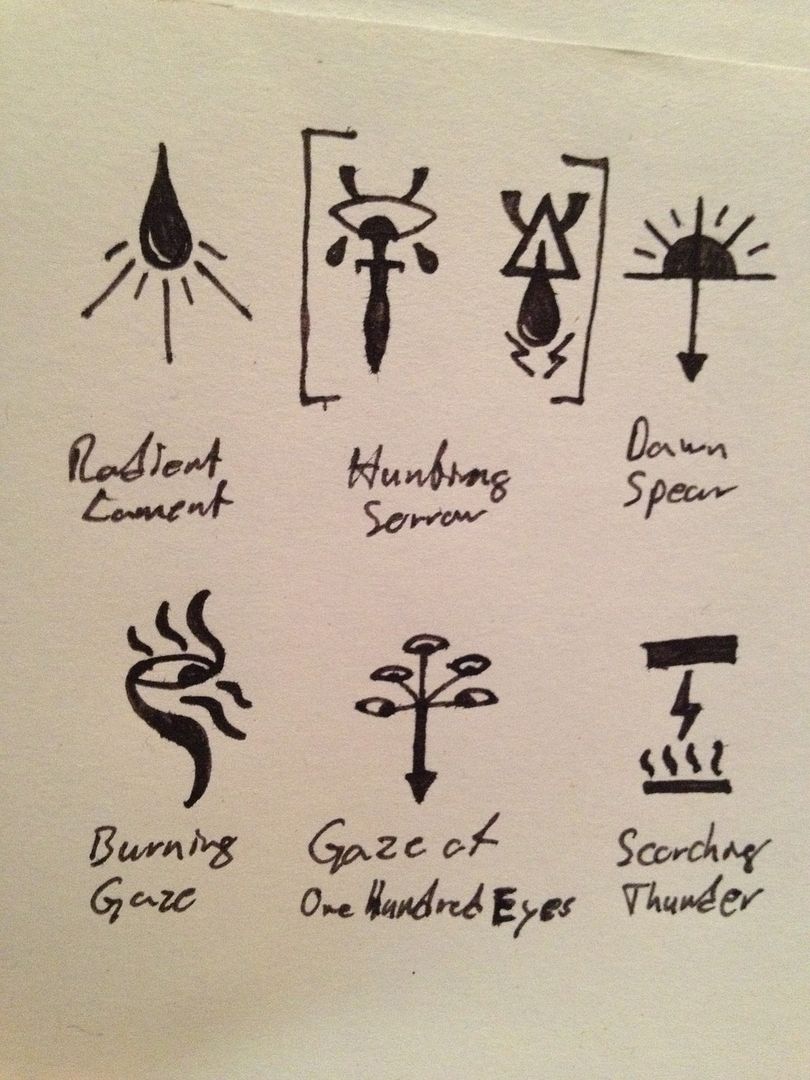 Radient
Lament
Hunting
Sorrow
Dawn
Spear
Burning
Gaze
Gaze of
One Hundred Eyes
Scorching
Thunder